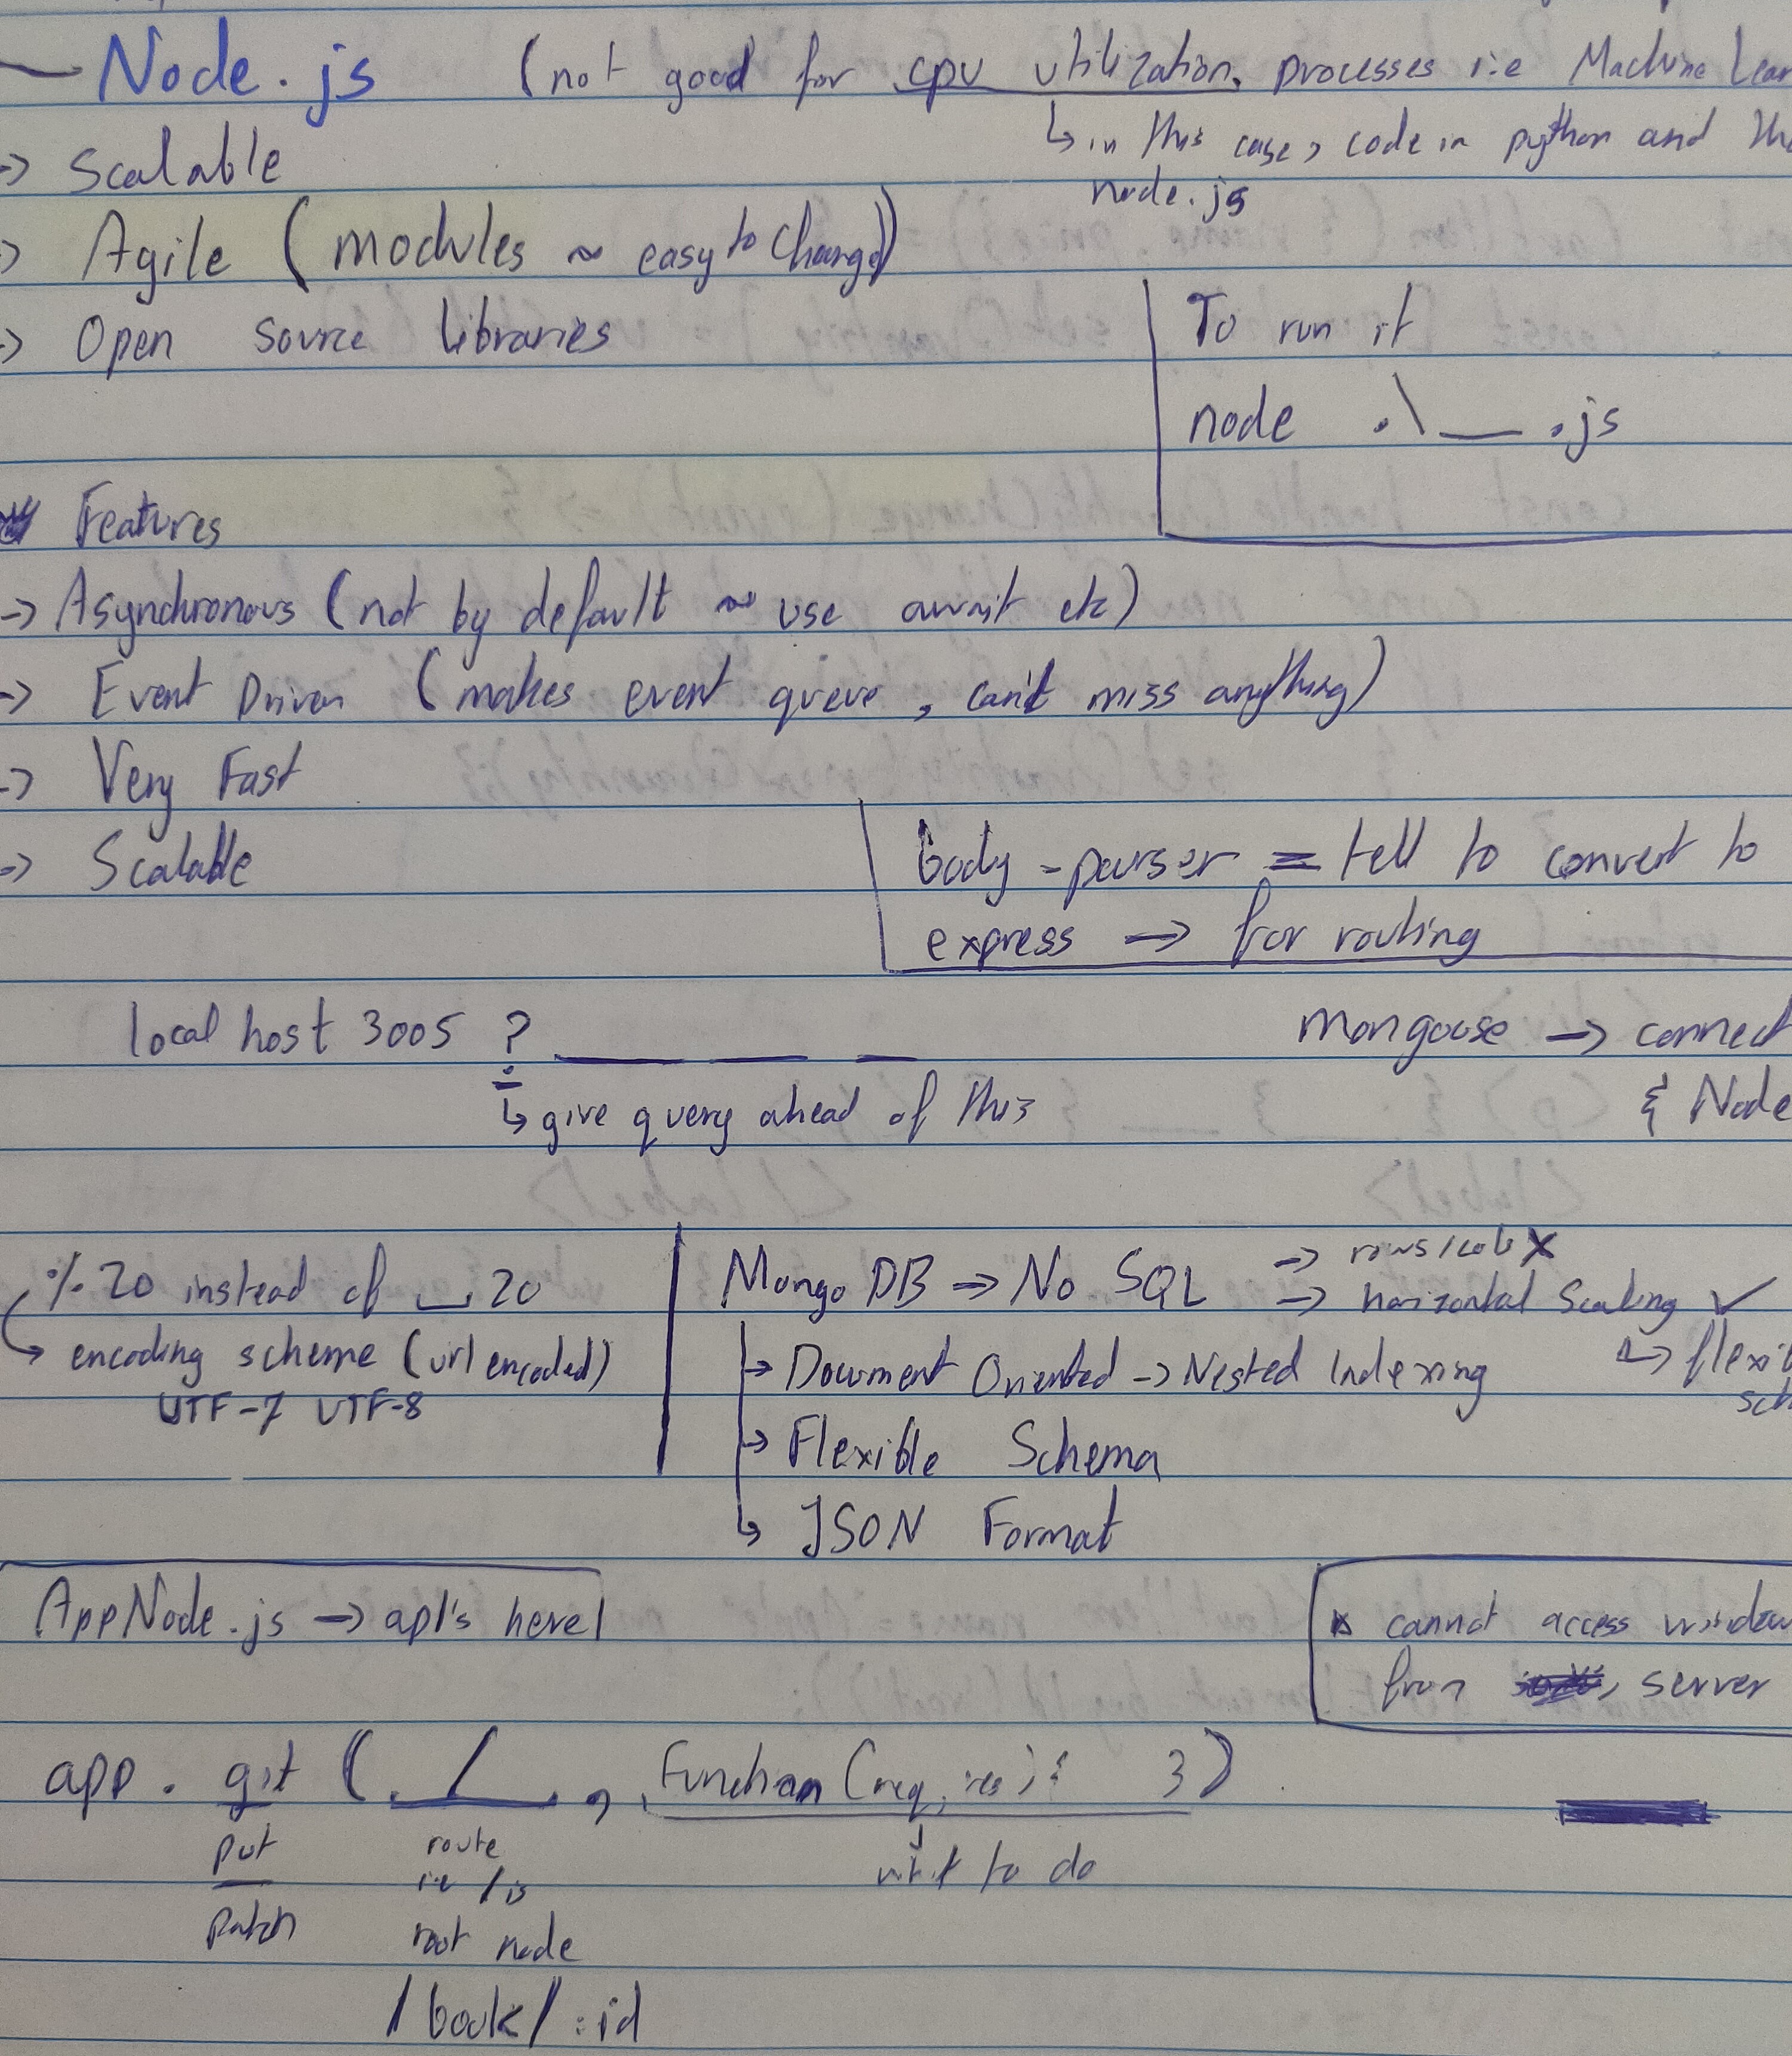 Node.js (not good for cpu utilization, processes i.e Machine Lear
↳ in this case, code in python and the
node.js
-> Scalable
-> Agile (modules ~ easy to change)
-> Open Source libraries
To run it
node .\__.js
Features
-> Asynchronous (not by default ~ use await etc)
-> Event Driven (makes event queue, can't miss anything)
-> Very Fast
-> Scalable
body-parser = tell to convert to
express -> for routing
local host 3005 ? ___ ___ ___
↳ give query ahead of this
mongoose -> connect
& Node
%20 instead of ⎵ 20
↳ encoding scheme (url encoded)
UTF-7 UTF-8
Mongo DB -> No SQL -> rows/cols X
-> horizontal Scaling ✓
↳ flexi
sch
↳ Document Oriented -> Nested Indexing
↳ Flexible Schema
↳ JSON Format
AppNode.js -> apI's here!
cannot access window
from server
app. get ( / , Function (req, res) { })
put
patch
route
i.e / is
root node
what to do
/book/:id